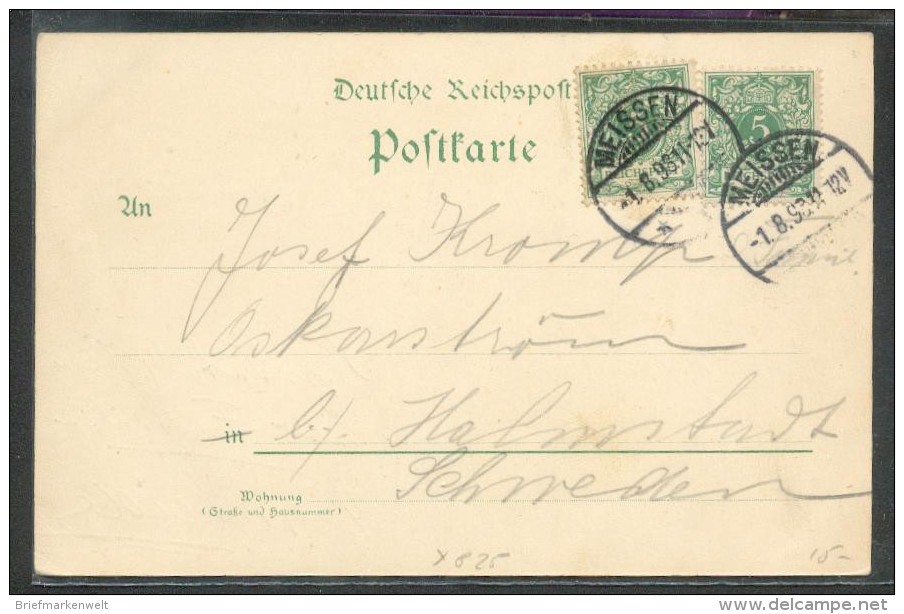 Deutsche Reichspost
Postkarte
5
MEISSEN
-1.8.98.11-12V
MEISSEN
-1.8.98.11-12V
An
Josef
Oskarström
in b/ Halmstadt
Schweden
Wohnung
(Straße und Hausnummer)
x 825
15-
Briefmarkenwelt
delcampe.net